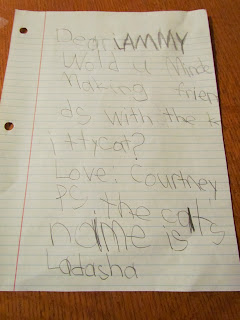 Dear LAMMY
Wold u Minde
Making frien
ds with the k
ittycat?
Love, Courtney
PS the cats
name is
Ladasha